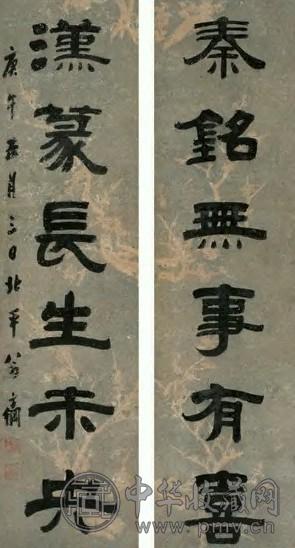 秦銘無事有喜
漢篆長生未央
庚午月三日北平翁方綱
中华收藏网
www.pmv.cn